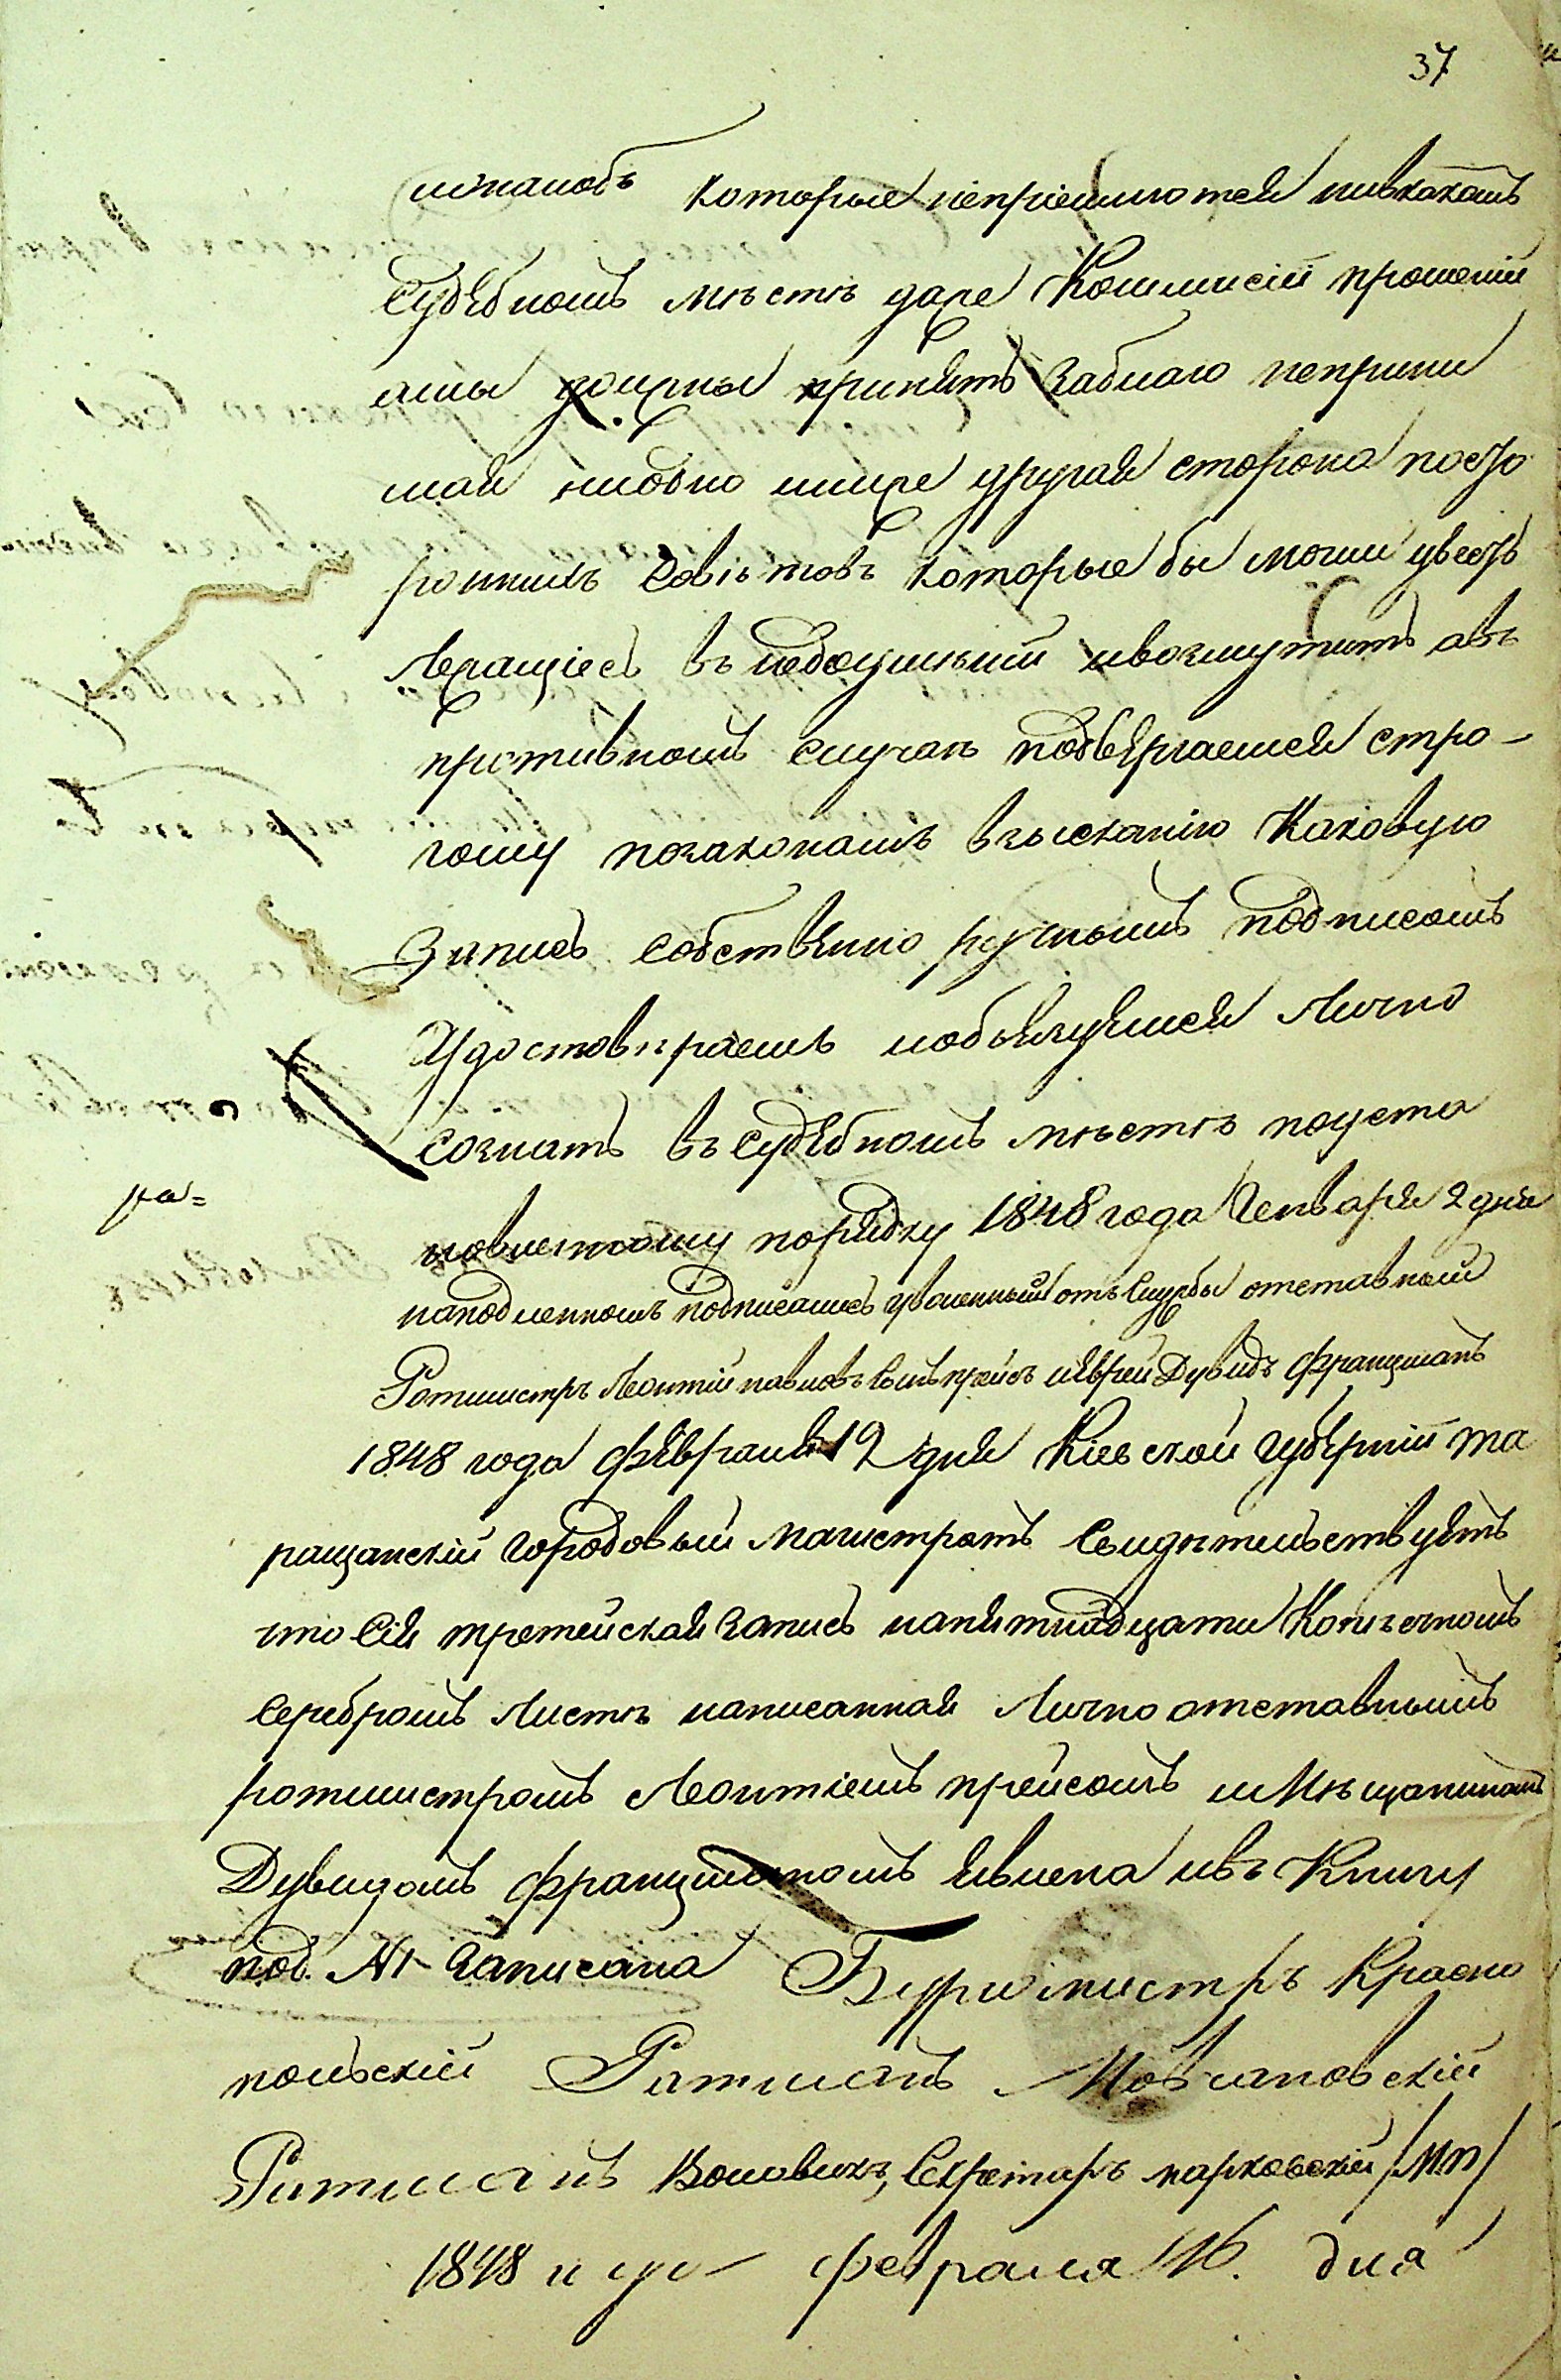 37
и жалобъ которые непріемлются нивкакомъ
Судебномъ мѣстѣ даже Коммисій прошеній
а мы должны принять заблаго неприни
мая ниодно ниже другая сторона посто
роннихъ совѣтовъ которые бы могли увесть
въ противномъ случаѣ подвергаемся стро-
гому позаконамъ взысканію Каковую
Запись собственно ручнымъ подписомъ
Удостовѣряемъ иобязуемся Лично
сознать въ Судебномъ мѣстѣ поуста
новленному порядку 1848 года Генваря 2 дня
наподлинномъ подписались уволенный отъ Службы отставный
Ротмистръ Леонтій Прейсъ иЕврей Дувидъ Францманъ
1848 года Февраля 12 дня Кіевской губерніи та
ращанскій Городовый магистратъ Свидѣтельствуетъ
что Сія третейская Запись напятнадцати Копѣечномъ
Серебромъ Листѣ написанная Лично отставнымъ
ротмистромъ Леонтіемъ прейсомъ иМѣщаниномъ
Дувидомъ Францманомъ явлена ивъ Книгу
под № 1 Записана Бургомистръ Красно
польскій Ратманъ
Ратманъ Воловикъ, Секретарь марковскій /МП/
1848 года февраля 16. дня
ра=